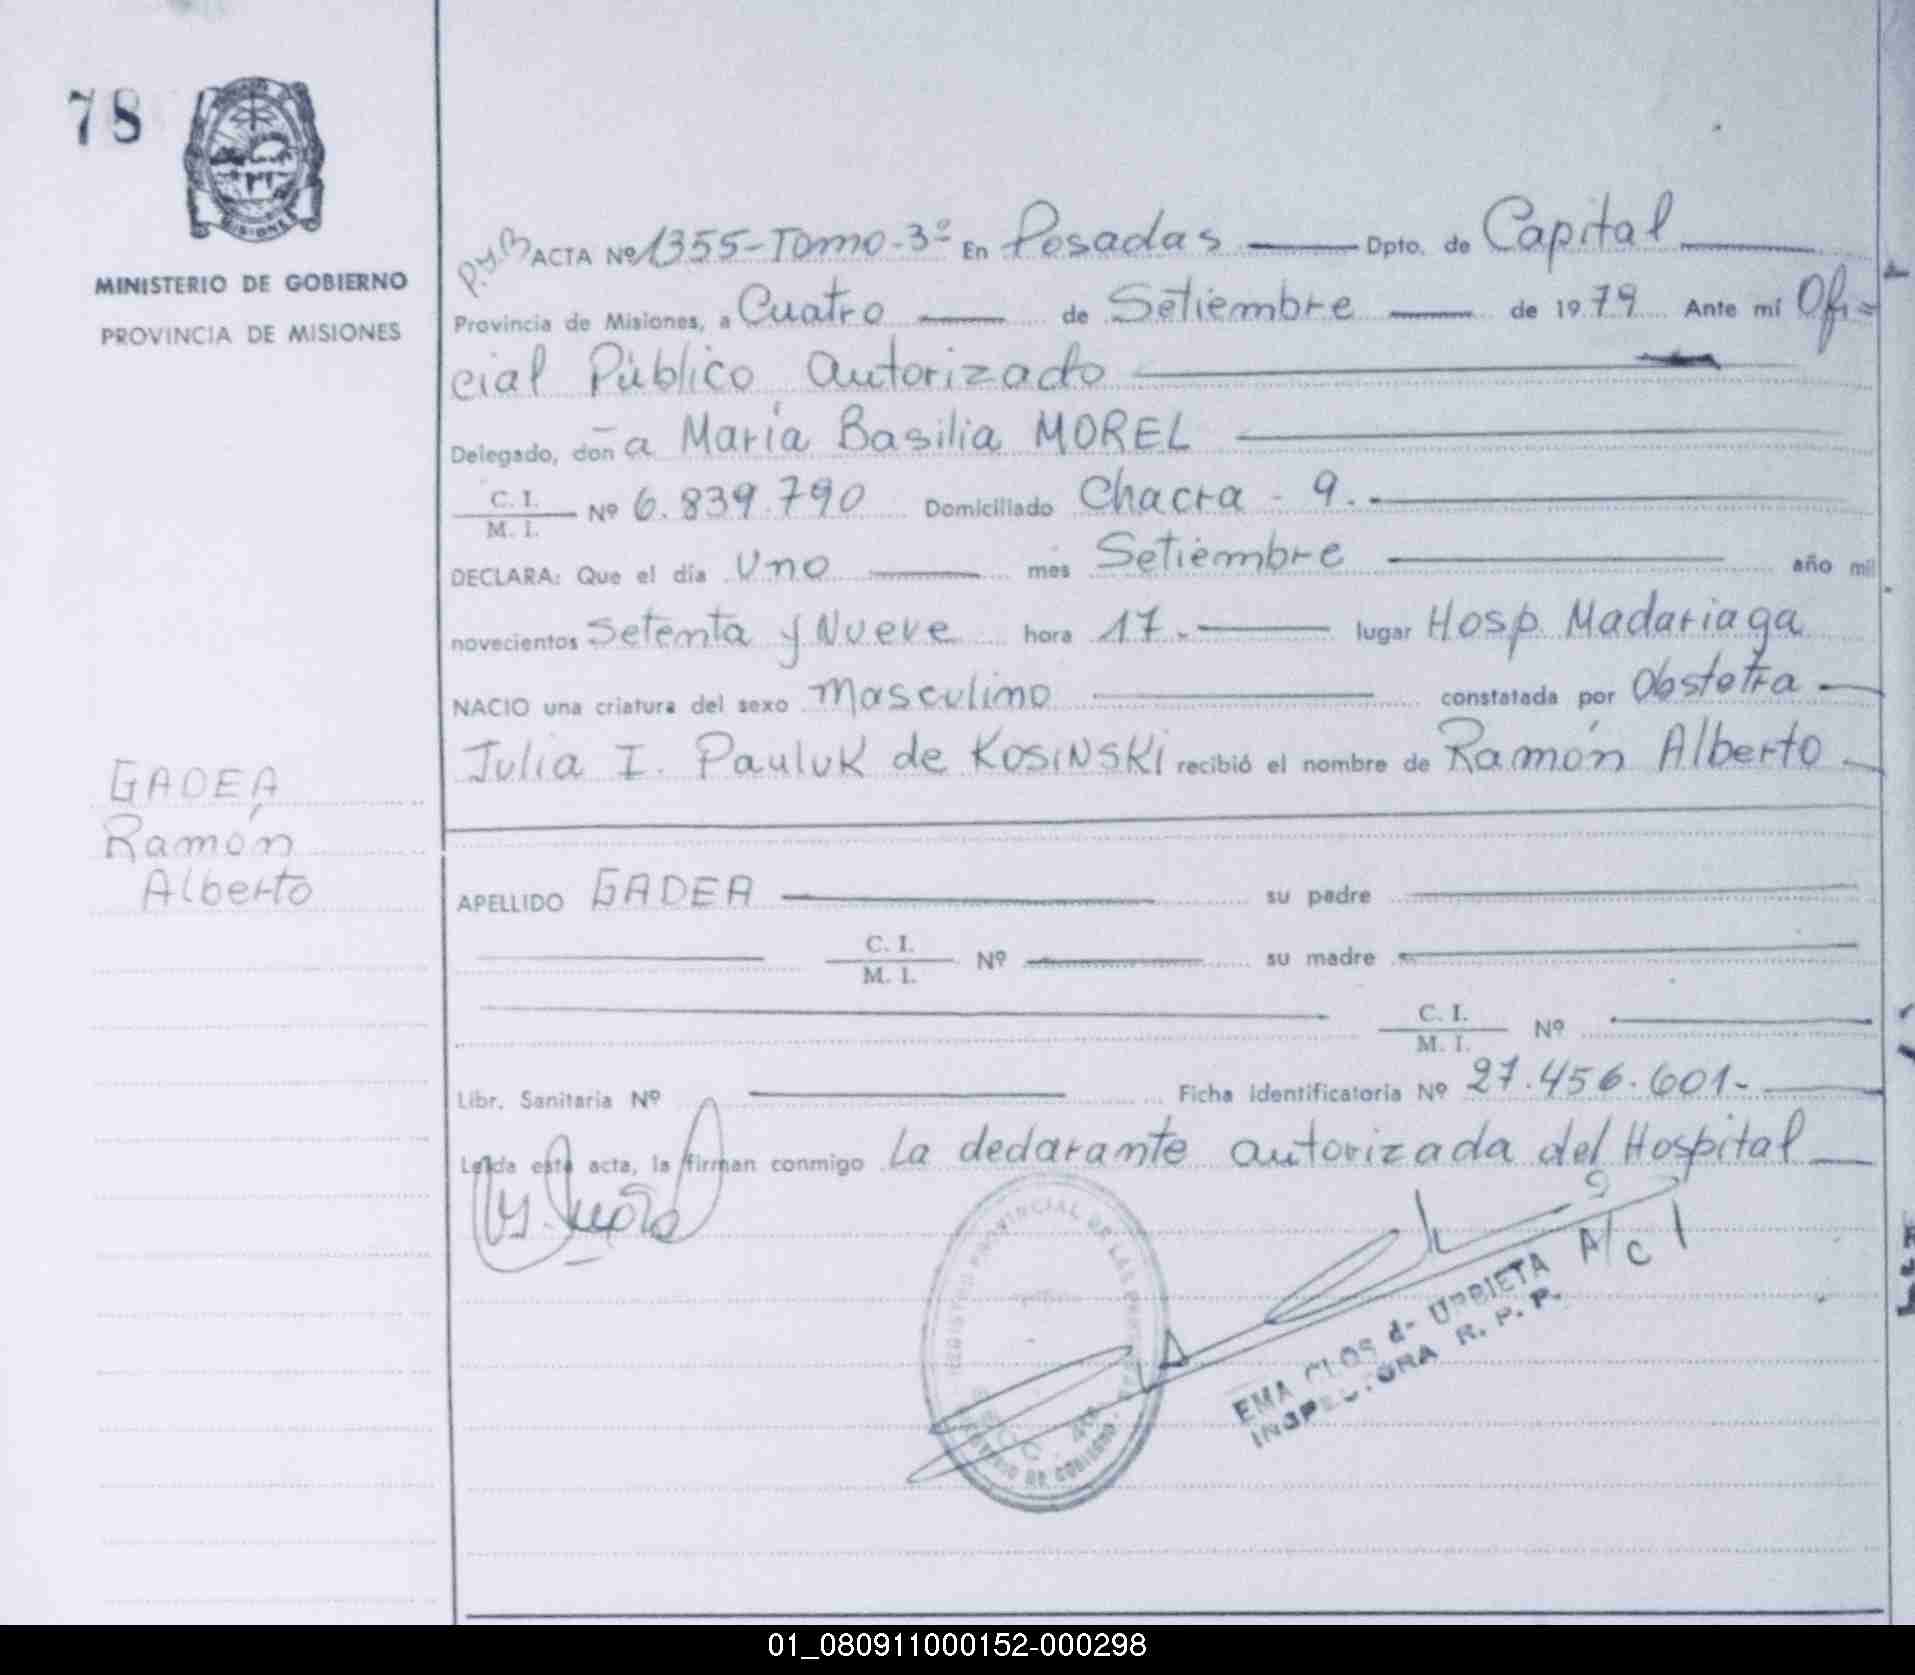 78
MISIONES
MINISTERIO DE GOBIERNO
PROVINCIA DE MISIONES
GADEA
Ramón
Alberto
P.y.B ACTA Nº 1355-Tomo-3º En Posadas Dpto. de Capital
Provincia de Misiones, a Cuatro de Setiembre de 1979 Ante mí Ofi=
cial Público Autorizado
Delegado, doña María Basilia MOREL
C. I.
M. I. Nº 6.839.790 Domiciliado Chacra - 9.-
DECLARA: Que el día Uno mes Setiembre año mil
novecientos Setenta y Nueve hora 17.- lugar Hosp. Madariaga
NACIO una criatura del sexo Masculino constatada por Obstetra
Julia I. Pauluk de KOSINSKI recibió el nombre de Ramón Alberto
APELLIDO GADEA su padre
C. I.
M. I. Nº su madre
C. I.
M. I. Nº
Libr. Sanitaria Nº Ficha identificatoria Nº 27.456.601-
Leída esta acta, la firman conmigo La declarante autorizada del Hospital
REGISTRO PROVINCIAL DE LAS PERSONAS
DE GOBIERNO
A/C
EMA CLOS de URBIETA
INSPECTORA R. P. P.
01_080911000152-000298